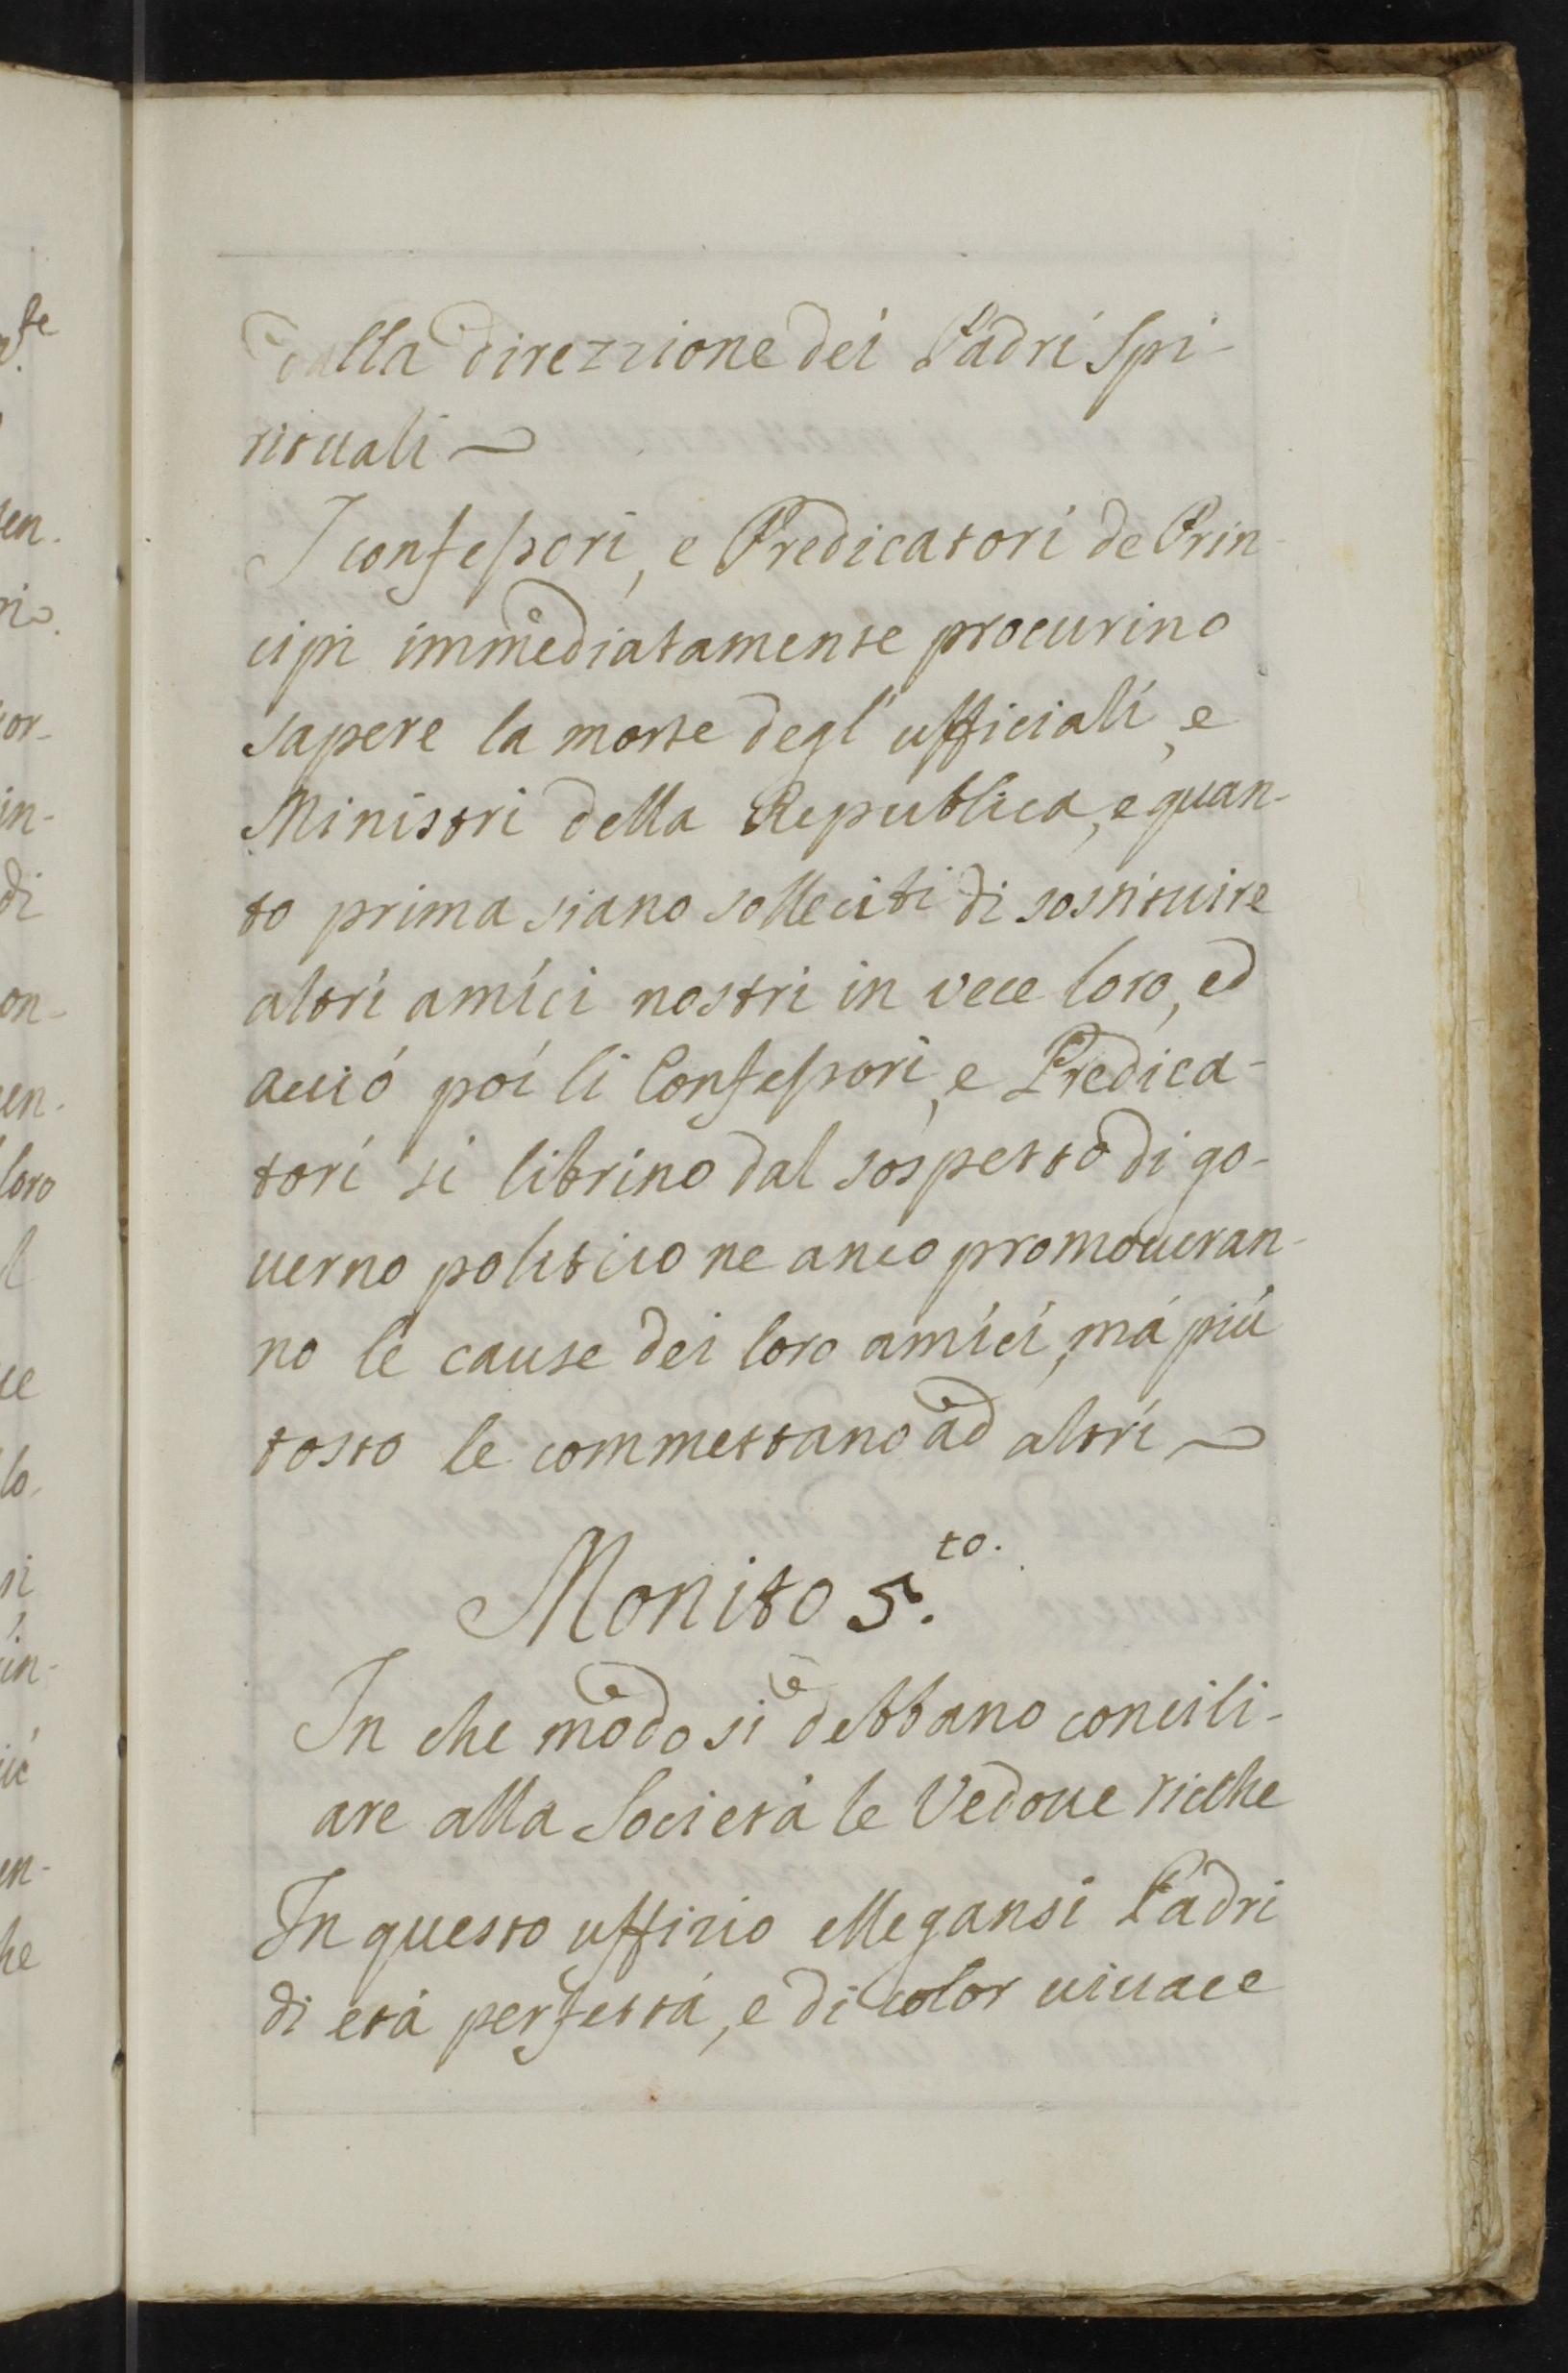 dalla direzzione dei Padri Spi-
rituali
I confessori, e Predicatori de Prin-
cipi immediatamente procurino
sapere la morte degl' ufficiali, e
Ministri della Republica, e quan-
to prima siano solleciti di sostituire
altri amici nostri in vece loro, ed
acció poi li Confessori, e Predica-
tori si librino dal sospetto di go-
uerno politico ne anco promoueran-
no le cause dei loro amici, má piú
tosto le commettano ad altri
Monito 5.to
In che modo si debbano concili-
are alla Societá le Vedoue ricche
In questo uffizio ellegansi Padri
di etá perfettá, e di color uiuace